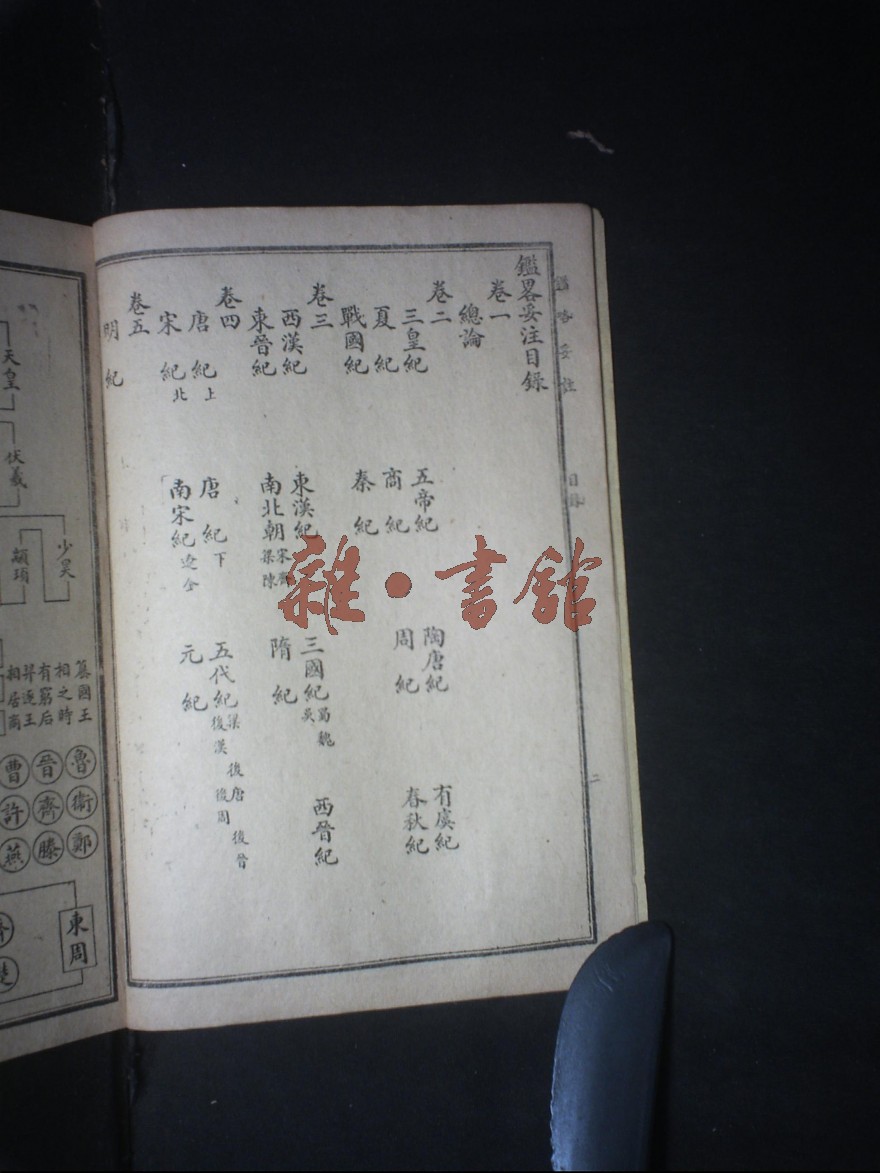 鑑畧妥注目錄
卷一
總論
卷二
三皇紀 五帝紀 陶唐紀 有虞紀
夏紀 商紀 周紀 春秋紀
戰國紀 秦紀
卷三
西漢紀 東漢紀 三國紀 蜀魏吳 西晉紀
東晉紀 南北朝 宋齊梁陳 隋紀
卷四
唐紀上 唐紀下 五代紀 梁 後唐 後晉 後漢 後周
宋紀北 南宋紀 遼金 元紀
卷五
明紀
鑑畧妥註 目錄 二
雜·書館
天皇
伏羲
少昊
顓頊
篡國王
相之時
有窮后
羿逐王
相居商
魯 衛 鄭
晉 齊 滕
曹 許 燕
東周
楚